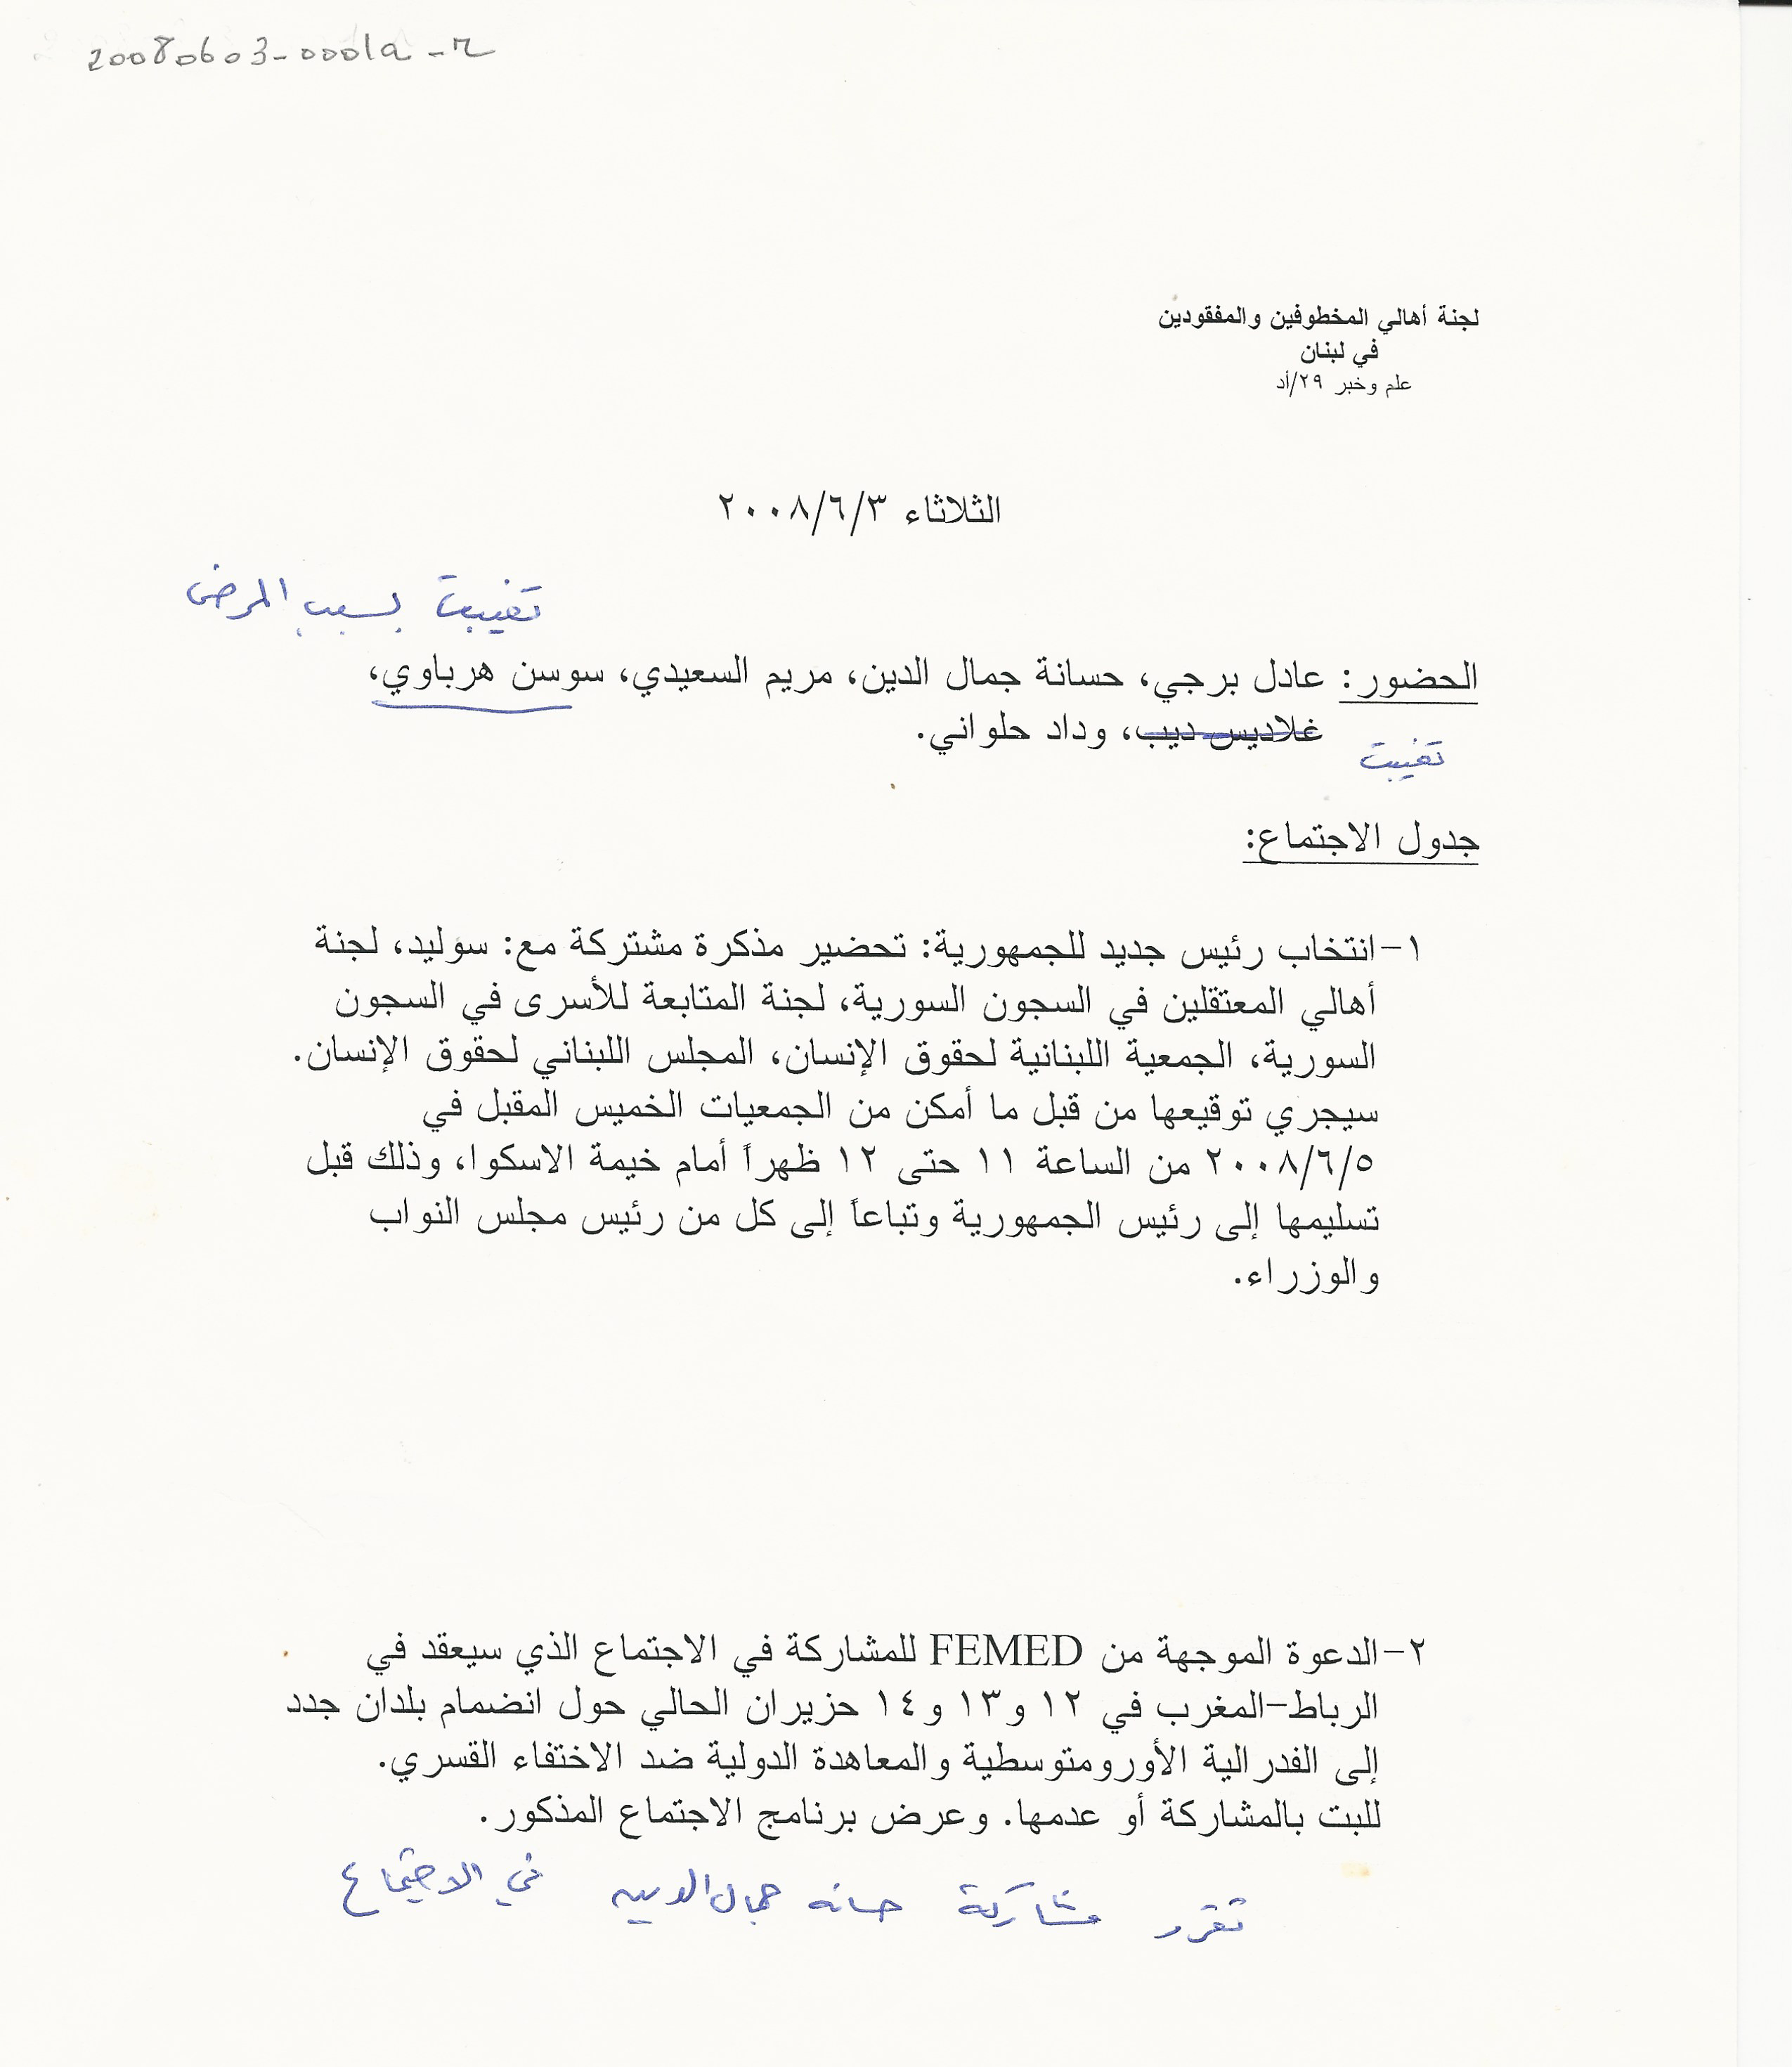 20080603-0001a-r
لجنة أهالي المخطوفين والمفقودين
في لبنان
علم وخبر ٢٩/أد
الثلاثاء ٢٠٠٨/٦/٣
تغيبت بسبب المرض
الحضور: عادل برجي، حسانة جمال الدين، مريم السعيدي، سوسن هرباوي،
غلاديس ديب، وداد حلواني.
تغيبت
جدول الاجتماع:
١-انتخاب رئيس جديد للجمهورية: تحضير مذكرة مشتركة مع: سوليد، لجنة
أهالي المعتقلين في السجون السورية، لجنة المتابعة للأسرى في السجون
السورية، الجمعية اللبنانية لحقوق الإنسان، المجلس اللبناني لحقوق الإنسان.
سيجري توقيعها من قبل ما أمكن من الجمعيات الخميس المقبل في
٢٠٠٨/٦/٥ من الساعة ١١ حتى ١٢ ظهراً أمام خيمة الاسكوا، وذلك قبل
تسليمها إلى رئيس الجمهورية وتباعاً إلى كل من رئيس مجلس النواب
والوزراء.
٢-الدعوة الموجهة من FEMED للمشاركة في الاجتماع الذي سيعقد في
الرباط-المغرب في ١٢ و١٣ و١٤ حزيران الحالي حول انضمام بلدان جدد
إلى الفدرالية الأورومتوسطية والمعاهدة الدولية ضد الاختفاء القسري.
للبت بالمشاركة أو عدمها. وعرض برنامج الاجتماع المذكور.
تقرر مشاركة حسانه جمال الدين في الاجتماع